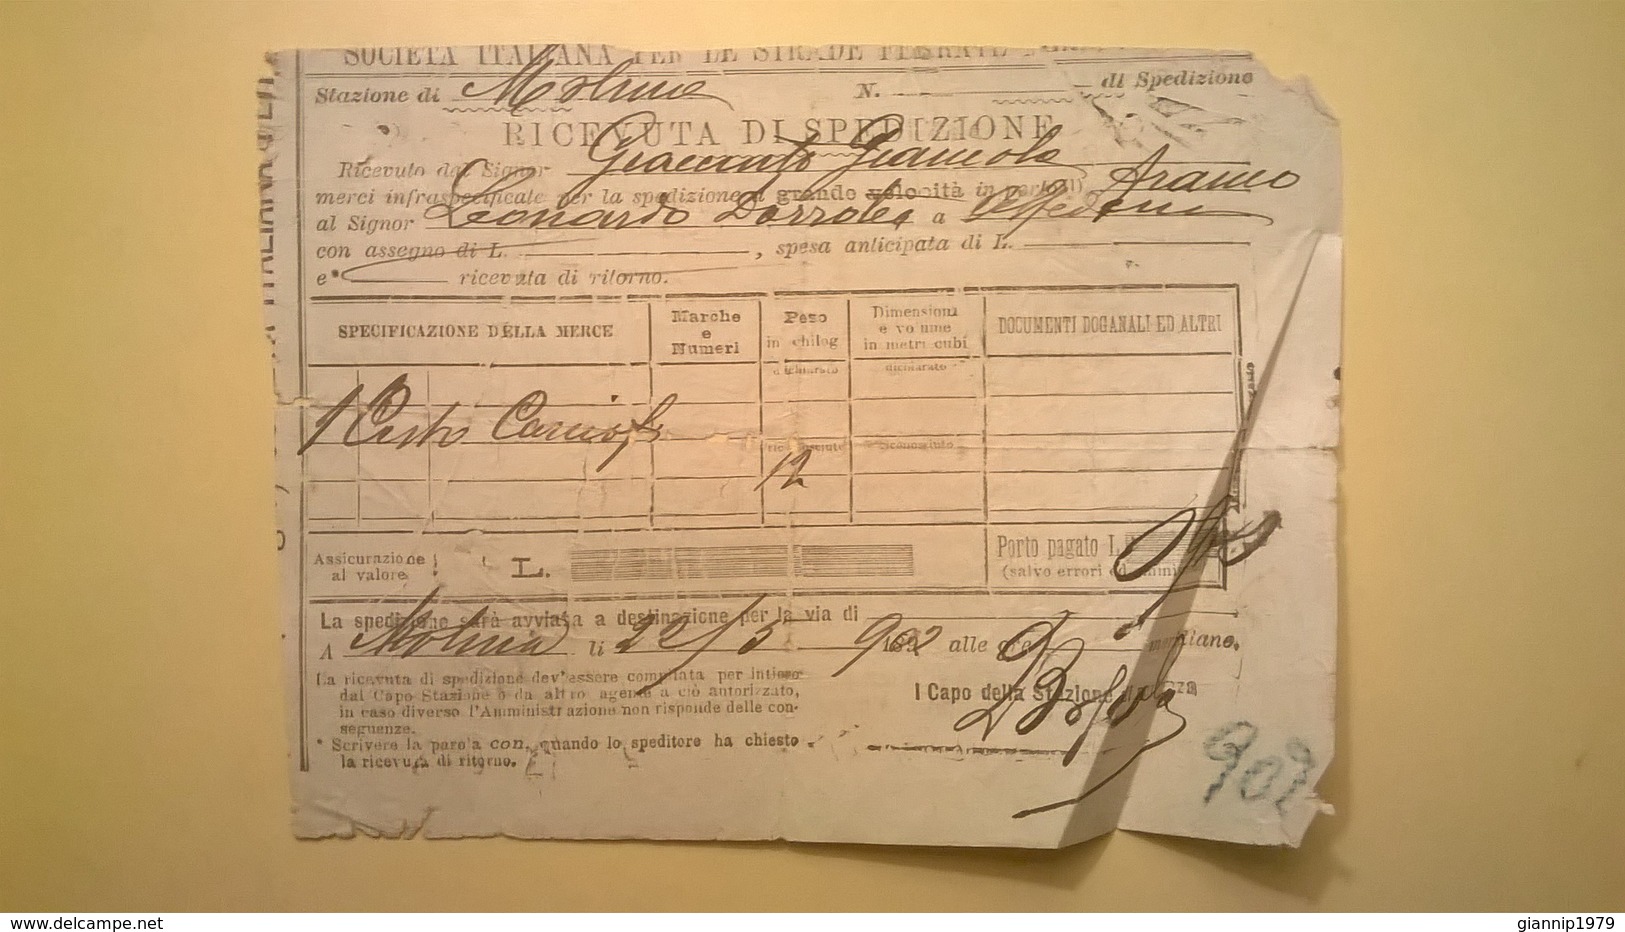 SOCIETÀ ITALIANA PER LE STRADE FERRATE
Stazione di Molina N. di Spedizione
RICEVUTA DI SPEDIZIONE
Ricevuto dal Signor Giacinto
merci infraspecificate per la spedizione a grande velocità in porto Franco
al Signor Leonardo a
con assegno di L. , spesa anticipata di L.
e* ricevuta di ritorno.
SPECIFICAZIONE DELLA MERCE
Marche
e
Numeri
Peso
in chilog
dichiarato
Dimensioni
e volume
in metri cubi
dichiarato
DOCUMENTI DOGANALI ED ALTRI
1 Cesto Carciofi
riconosciuto
riconosciuto
12
Assicurazione
al valore
L.
Porto pagato L.
(salvo errori ed
La spedizione sarà avviata a destinazione per la via di
A Molina li 22/5 902 189 alle ore 9 meridiane.
La ricevuta di spedizione dev'essere compilata per intiero
dal Capo Stazione o da altro agente a ciò autorizzato,
in caso diverso l'Amministrazione non risponde delle con-
seguenze.
* Scrivere la parola con, quando lo speditore ha chiesto
la ricevuta di ritorno.
Il Capo della Stazione
902
delcampe.net
giannip1979